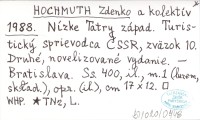 HOCHMUTH Zdenko a kolektív
1988. Nízke Tatry západ. Turis-
tický sprievodca ČSSR, zväzok 10.
Druhé, novelizované vydanie. –
Bratislava. Ss. 400, il., m.1 (barem,
sklad.), opa. (il.), cm 17 x 12. □
WHP. ★TNz, L.